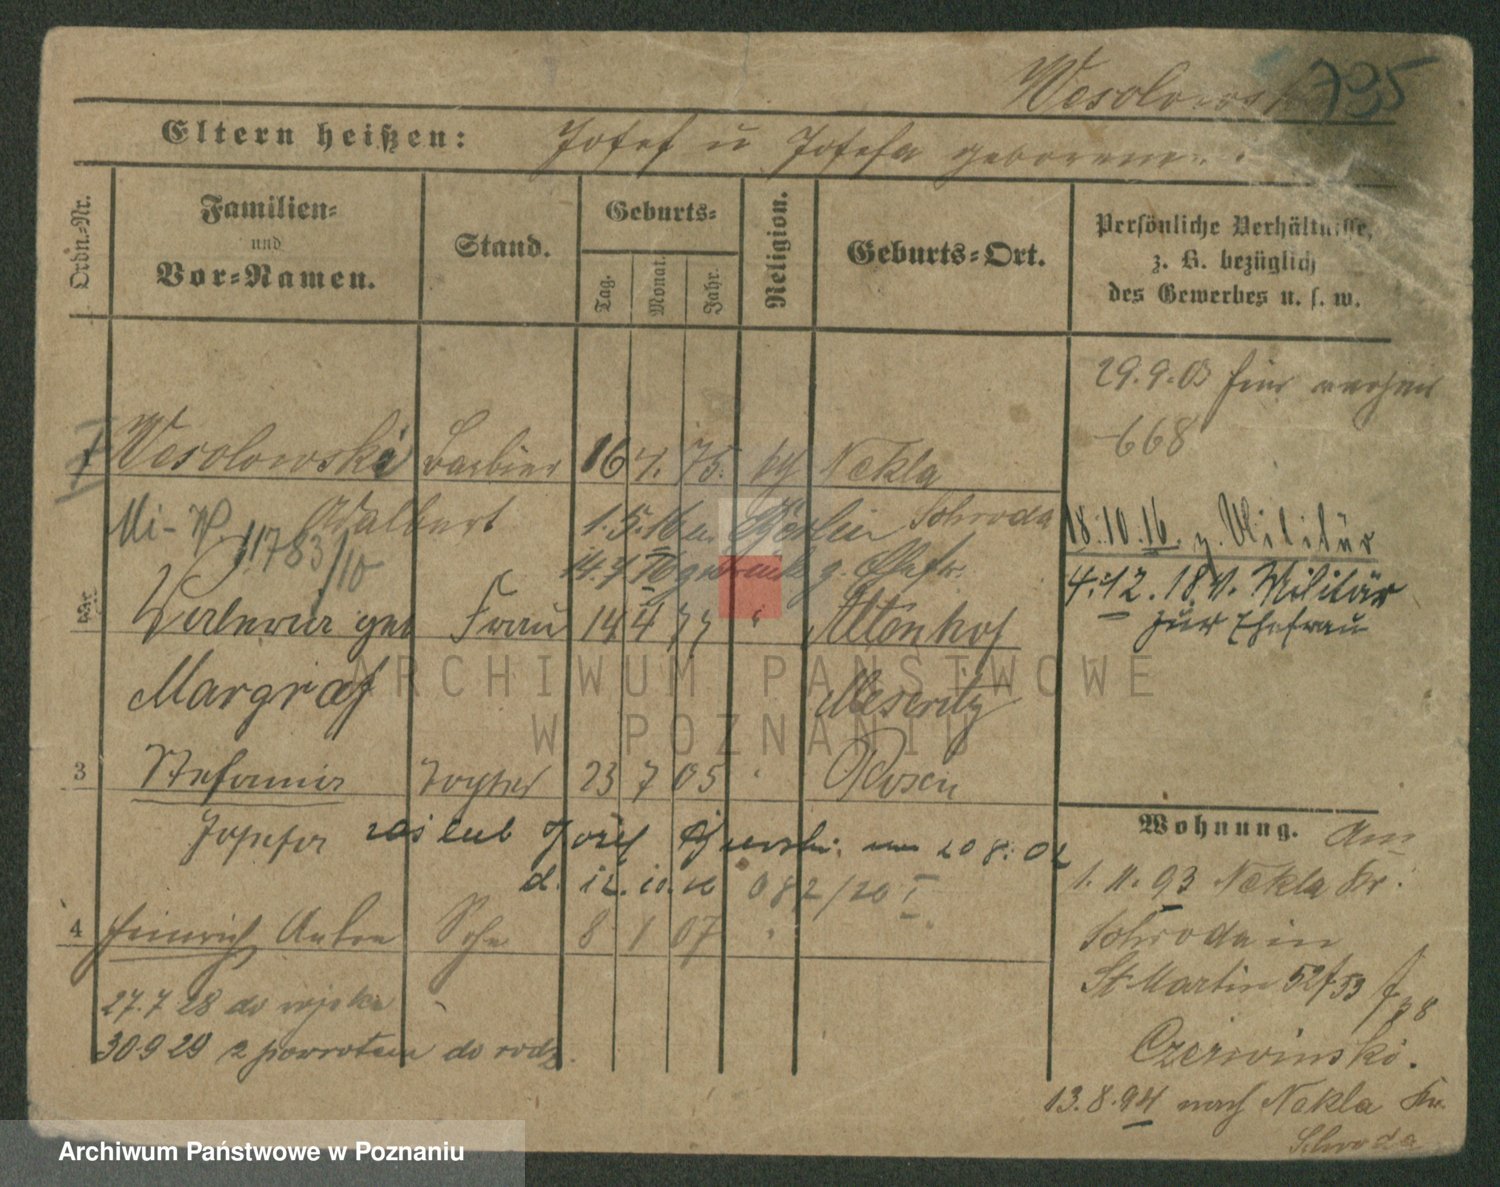 Wesolowski 795
Eltern heißen: Josef u Josefa geborene
Ordn.-Nr.
Familien-
und
Vor-Namen.
Stand.
Geburts-
Tag.
Monat.
Jahr.
Religion.
Geburts-Ort.
Persönliche Verhältnisse,
z. B. bezüglich
des Gewerbes u. s. w.
29.9.03
668
1 Wesolowski Barbier 16 4. 75. kth Nekla
Adalbert Schroda
Mi-W. 11783/10
1.5.16 n. Berlin
18.10.16. z. Militär
4.12.18 v. Militär
zur Ehefrau
2 Valeria geb Frau 14 4 77 " Altenhof
Margraf Meseritz
3 Stefania Tochter 23 7 05 " Posen
Josefa zaślub Józef
d. 12.10.26 082/26 I
4 Heinrich Anton Sohn 8 1 07 "
27.7 28 do wojska
30.9 29 z powrotem do rodz.
Wohnung. Am
1.11.93 Nekla Kr.
Schroda in
St Martin 52/53
Czerwinski.
13.8.94 nach Nekla Kr.
Schroda
ARCHIWUM PAŃSTWOWE
W POZNANIU
Archiwum Państwowe w Poznaniu